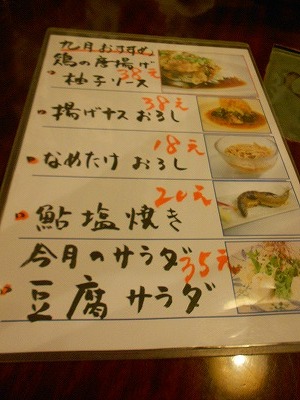 九月おすすめ
鶏の唐揚げ
柚子ソース 38元
揚げナス おろし 38元
なめたけ おろし 18元
鮎塩焼き 20元
今月のサラダ 35元
豆腐サラダ